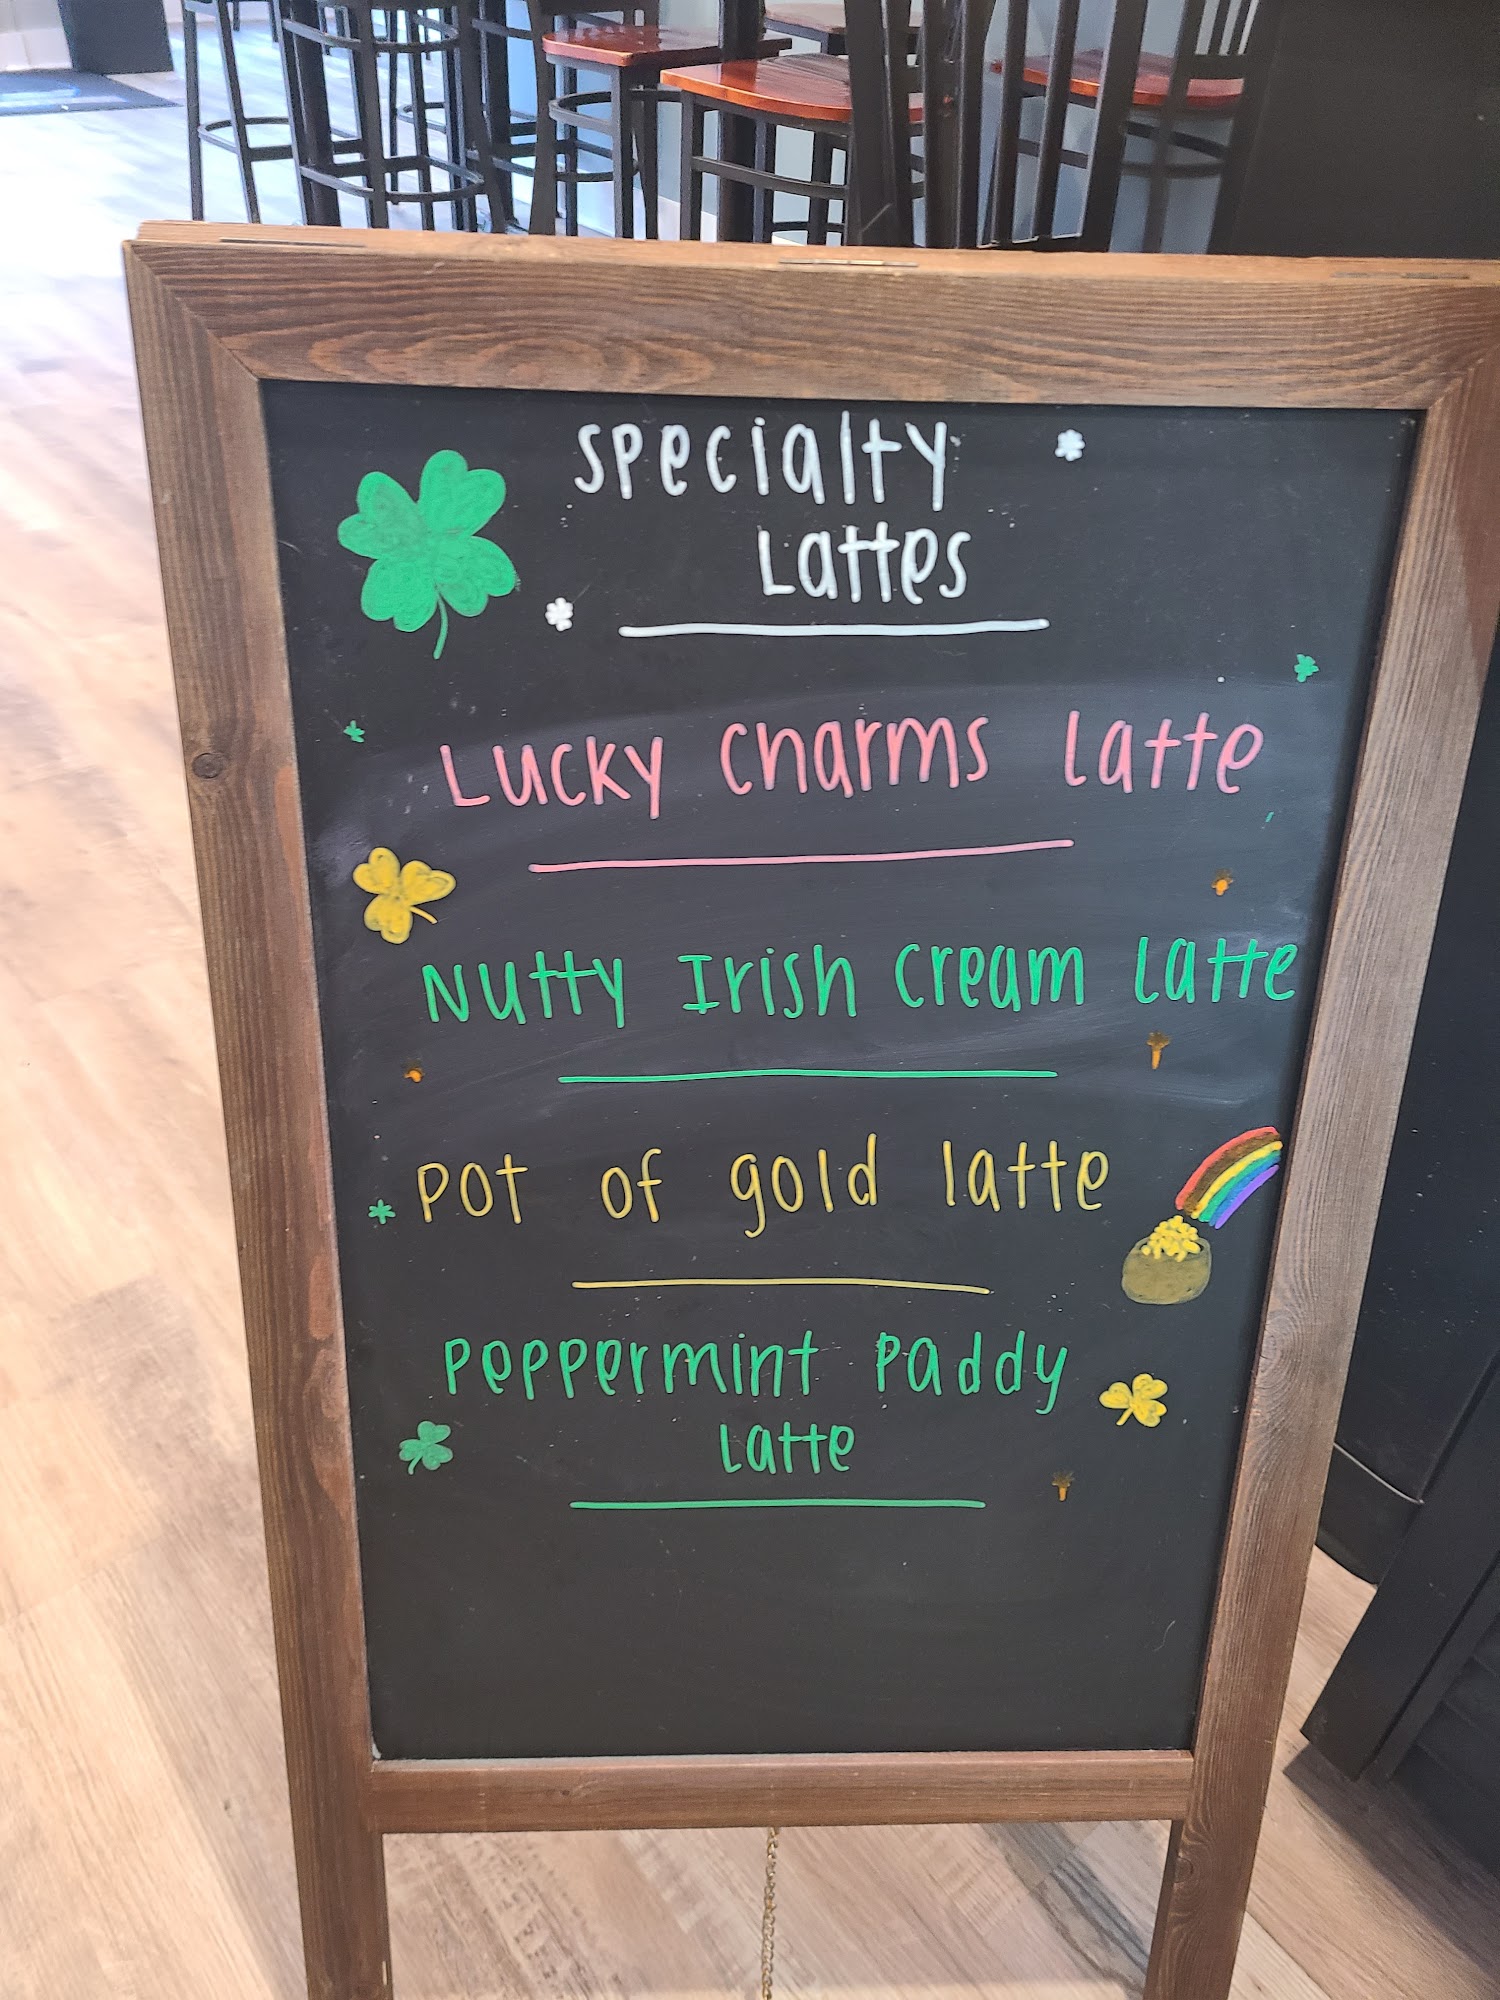 Specialty
Lattes
Lucky Charms Latte
Nutty Irish Cream Latte
Pot of gold latte
Peppermint Paddy
Latte